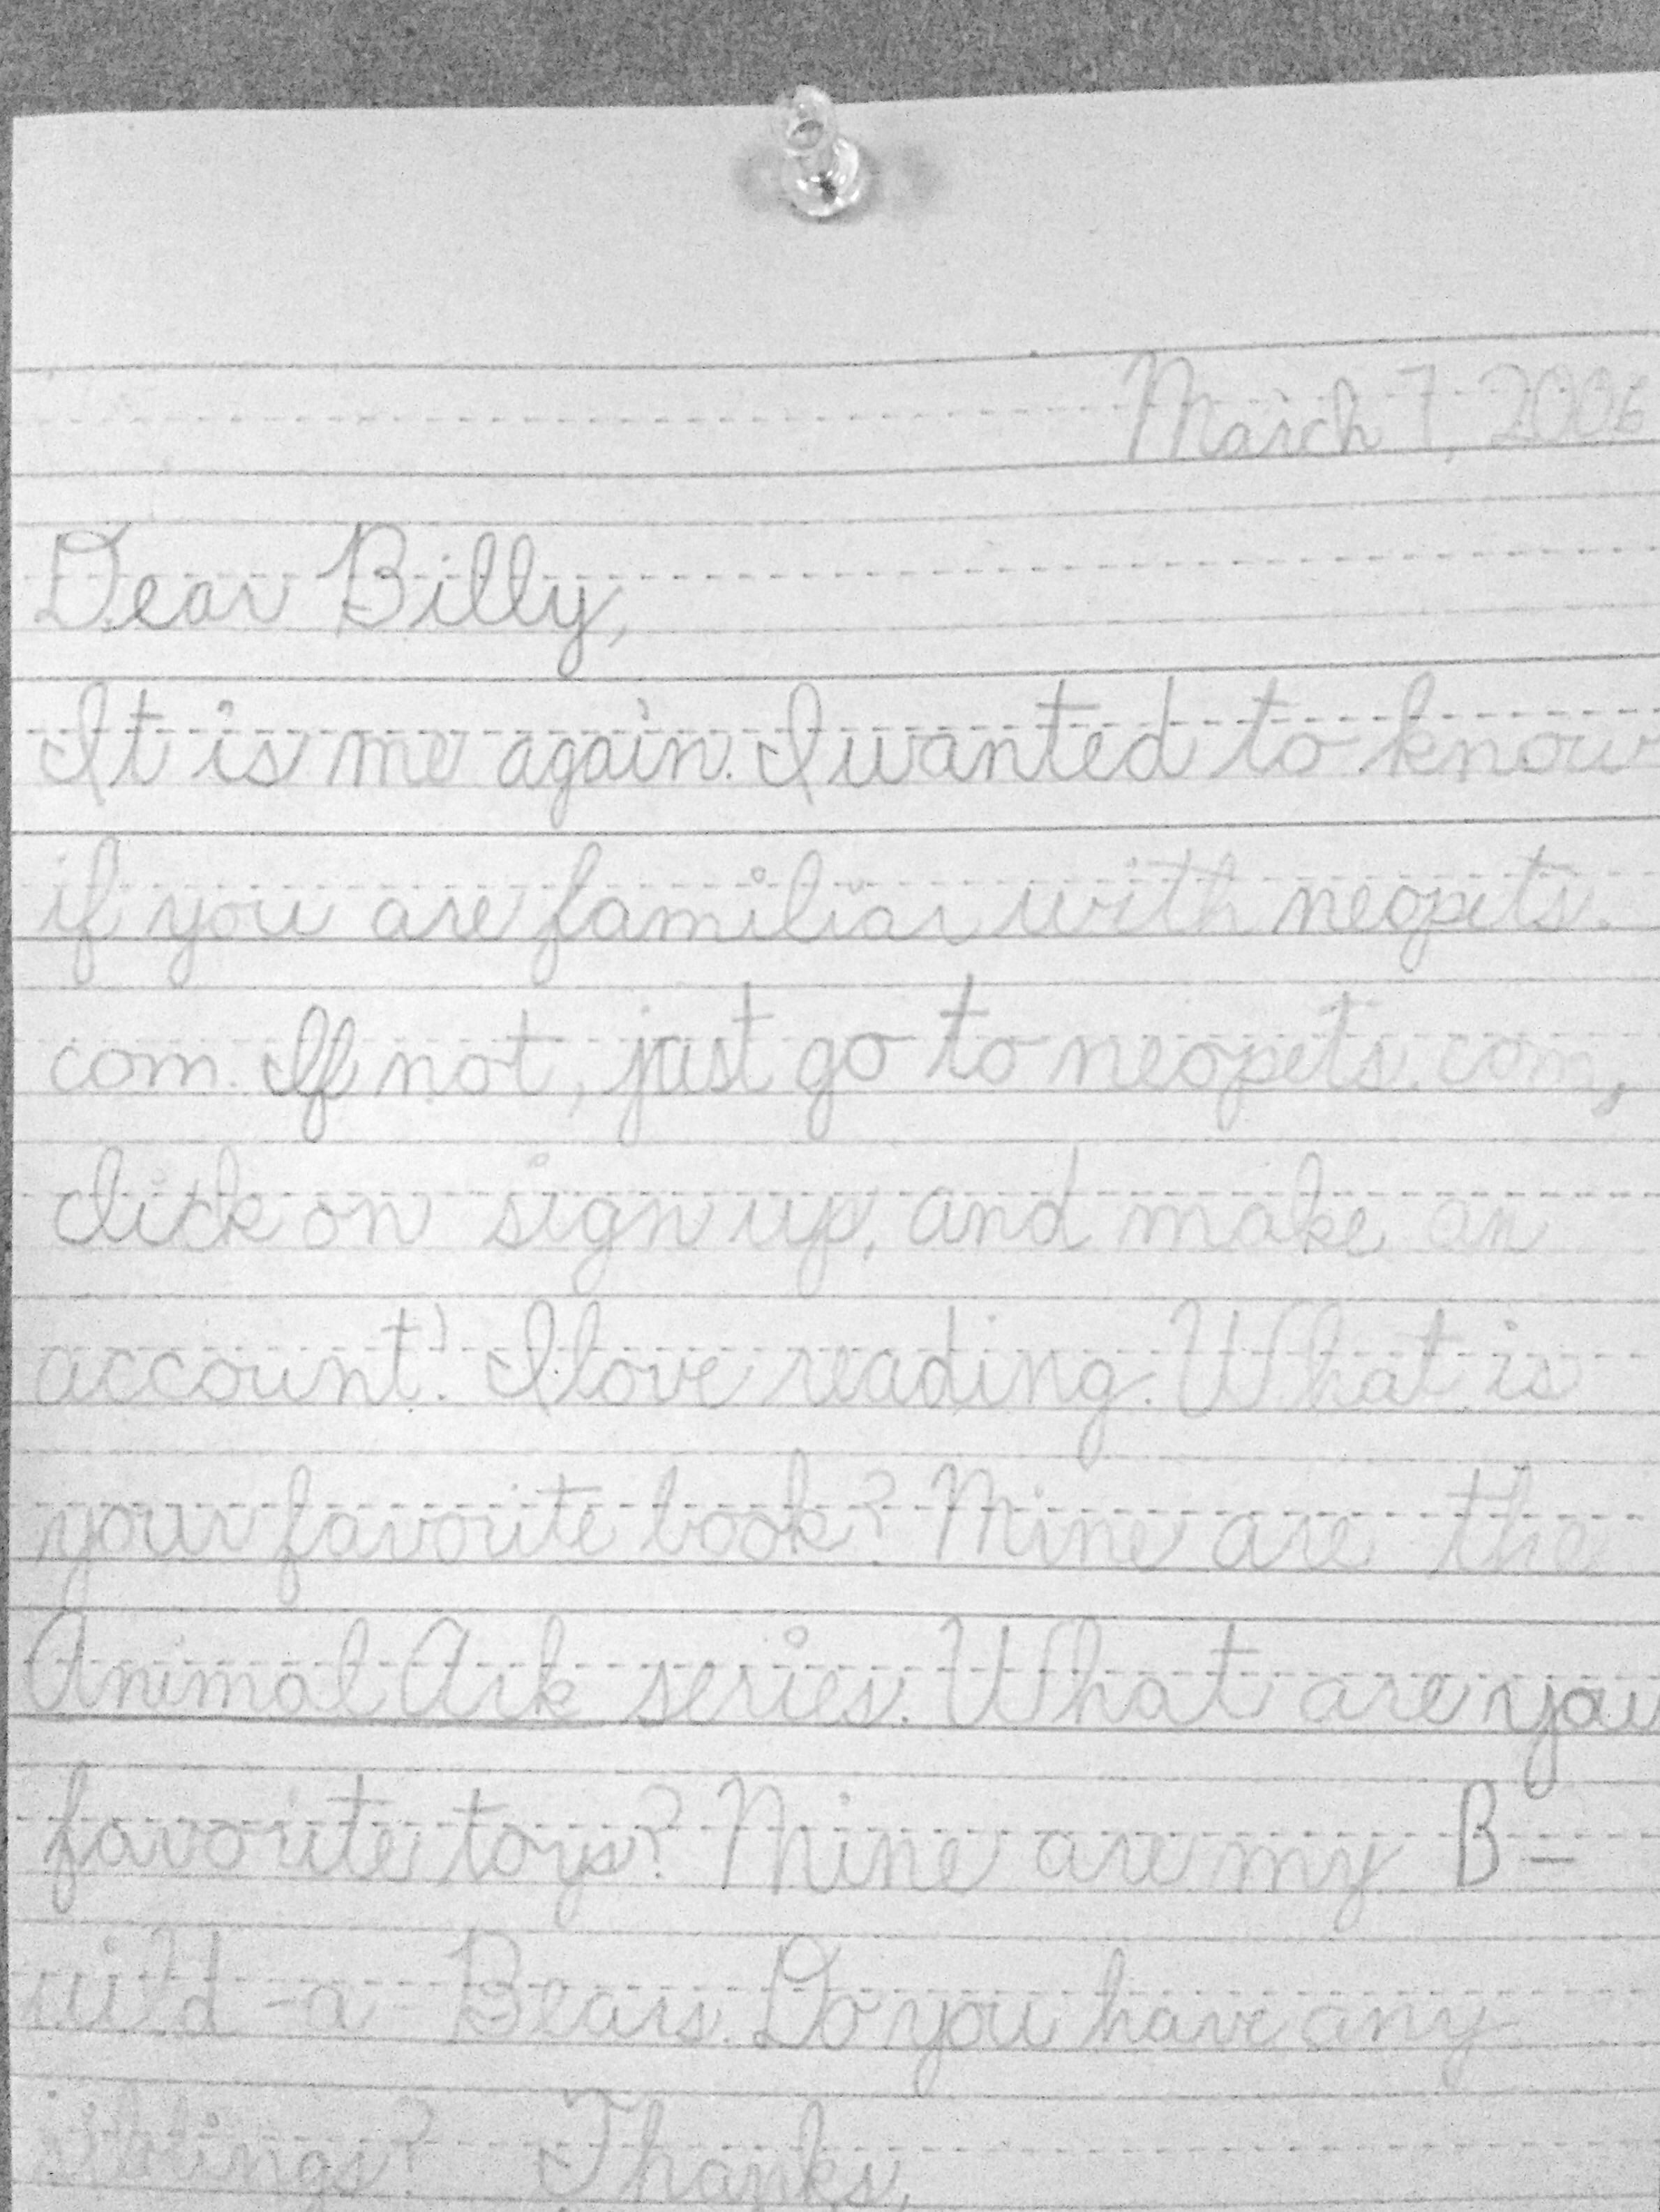 March 7, 2006
Dear Billy,
It is me again. I wanted to know
if you are familiar with neopets.
com. If not, just go to neopets.com,
click on sign up, and make an
account! I love reading. What is
your favorite book? Mine are the
Animal Ark series. What are you
favorite toys? Mine are my B=
uild-a-Bears. Do you have any
siblings? Thanks,